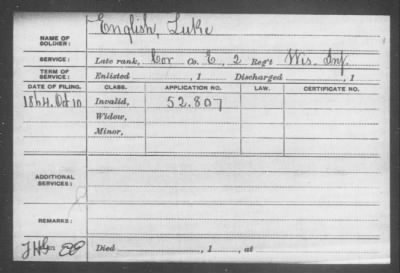 NAME OF SOLDIER: English, Luke
SERVICE: Late rank, Cor Co. E, 2 Reg't Wis. Inf.
TERM OF SERVICE: Enlisted , 1 Discharged , 1
DATE OF FILING. CLASS. APPLICATION NO. LAW. CERTIFICATE NO.
1864. Oct 10 Invalid, 52.807
Widow,
Minor,
ADDITIONAL SERVICES:
REMARKS:
Died , 1 , at